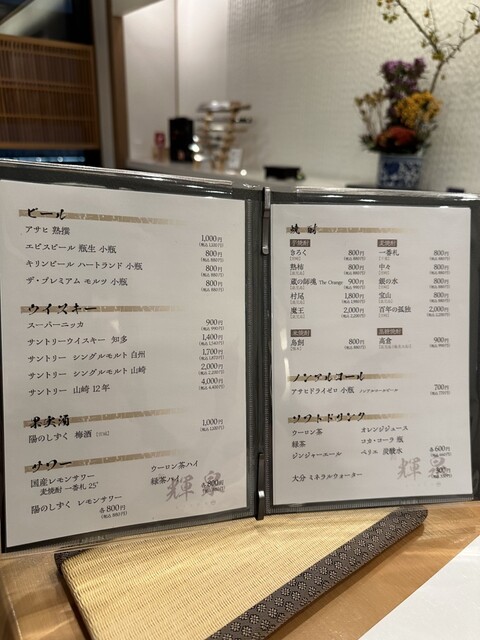 ビール
アサヒ 熟撰 1,000円
(税込 1,100円)
エビスビール 瓶生 小瓶 800円
(税込 880円)
キリンビール ハートランド 小瓶 800円
(税込 880円)
ザ・プレミアム モルツ 小瓶 800円
(税込 880円)
ウイスキー
スーパーニッカ 900円
(税込 990円)
サントリーウイスキー 知多 1,400円
(税込 1,540円)
サントリー シングルモルト 白州 1,700円
(税込 1,870円)
サントリー シングルモルト 山崎 2,000円
(税込 2,200円)
サントリー 山崎 12年 4,000円
(税込 4,400円)
果実酒
陽のしずく 梅酒 1,000円
(税込 1,100円)
サワー
国産レモンサワー
麦焼酎 一番札 25°
陽のしずく レモンサワー
各800円
(税込 880円)
ウーロン茶ハイ
緑茶ハイ
輝
焼酎
芋焼酎
きろく 800円
(税込 880円)
熟柿 800円
(税込 880円)
蔵の師魂 The Orange 900円
(税込 990円)
村尾 1,800円
(税込 1,980円)
魔王 2,000円
(税込 2,200円)
麦焼酎
一番札 800円
(税込 880円)
中々 800円
(税込 880円)
銀の水 800円
(税込 880円)
宝山 800円
(税込 880円)
百年の孤独 2,000円
(税込 2,200円)
米焼酎
鳥飼 800円
(税込 880円)
黒糖焼酎
高倉 900円
(税込 990円)
ノンアルコール
アサヒドライゼロ 小瓶 ノンアルコールビール 700円
(税込 770円)
ソフトドリンク
ウーロン茶
緑茶
ジンジャーエール
オレンジジュース
コカ・コーラ 瓶
ペリエ 炭酸水
各600円
(税込 660円)
大分 ミネラルウォーター
輝